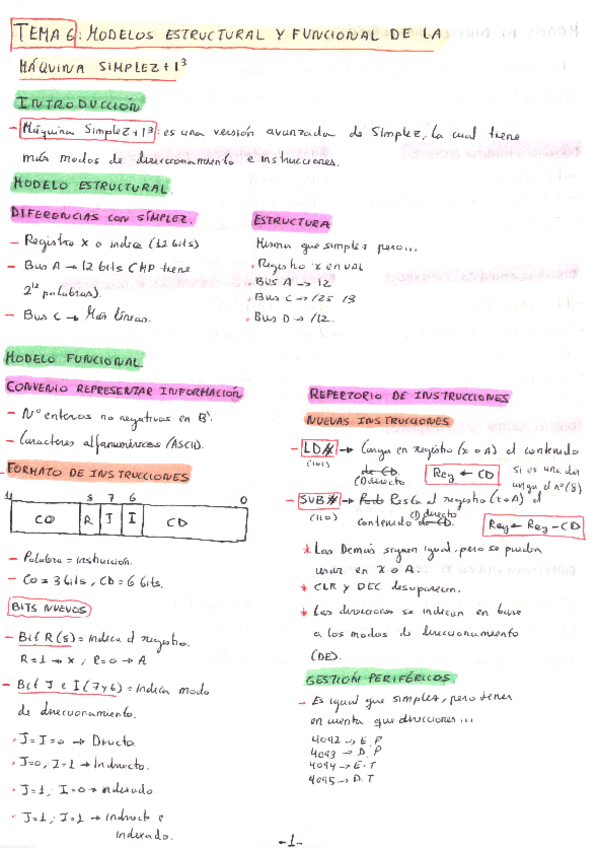 TEMA 6: MODELOS ESTRUCTURAL Y FUNCIONAL DE LA
MÁQUINA SIMPLEZ+I³
INTRODUCCIÓN
- Máquina Simplez+I³: es una versión avanzada de Simplez, la cual tiene
más modos de direccionamiento e instrucciones.
MODELO ESTRUCTURAL.
DIFERENCIAS CON SÍMPLEZ.
- Registro X o índice (12 bits)
- Bus A → 12 bits (MP tiene
2¹² palabras).
- Bus C → Más líneas.
ESTRUCTURA
Misma que simplez pero...
· Registro x en UAL
· BUS A → 12
· Bus C → 125 13
· Bus D → 12.
MODELO FUNCIONAL.
CONVENIO REPRESENTAR INFORMACIÓN
- Nº enteros no negativos en B'.
- Caracteres alfanuméricos (ASCII).
FORMATO DE INSTRUCCIONES
11 8 7 6 0
CO R J I CD
- Palabra = instrucción.
- CO = 3 bits, CD = 6 bits.
BITS NUEVOS
- Bit R (8) = Indica el registro.
R=1 → X, R=0 → A
- Bit J e I (7 y 6) = Indican modo
de direccionamiento.
· J=I=0 → Directo.
· J=0, I=1 → Indirecto.
· J=1, I=0 → indexado.
· J=1, I=1 → indirecto e
indexado.
REPERTORIO DE INSTRUCCIONES
NUEVAS INSTRUCCIONES
- LD# → Carga en registro (x o A) el contenido
(101) de CD.
CD directo Reg ← CD si es una
- SUB# → Resta el registro (x o A) el
(110) contenido de CD. CD directo Reg ← Reg - CD
* Las Demás siguen igual, pero se pueden
usar en X o A.
* CLR y DEC desaparecen.
* Las direcciones se indican en base
a los modos de direccionamiento
(DE).
GESTIÓN PERIFÉRICOS
- Es igual que simplez, pero tener
en cuenta que direcciones...
4092 → E.P
4093 → D.P
4094 → E.T
4095 → D.T
-1-